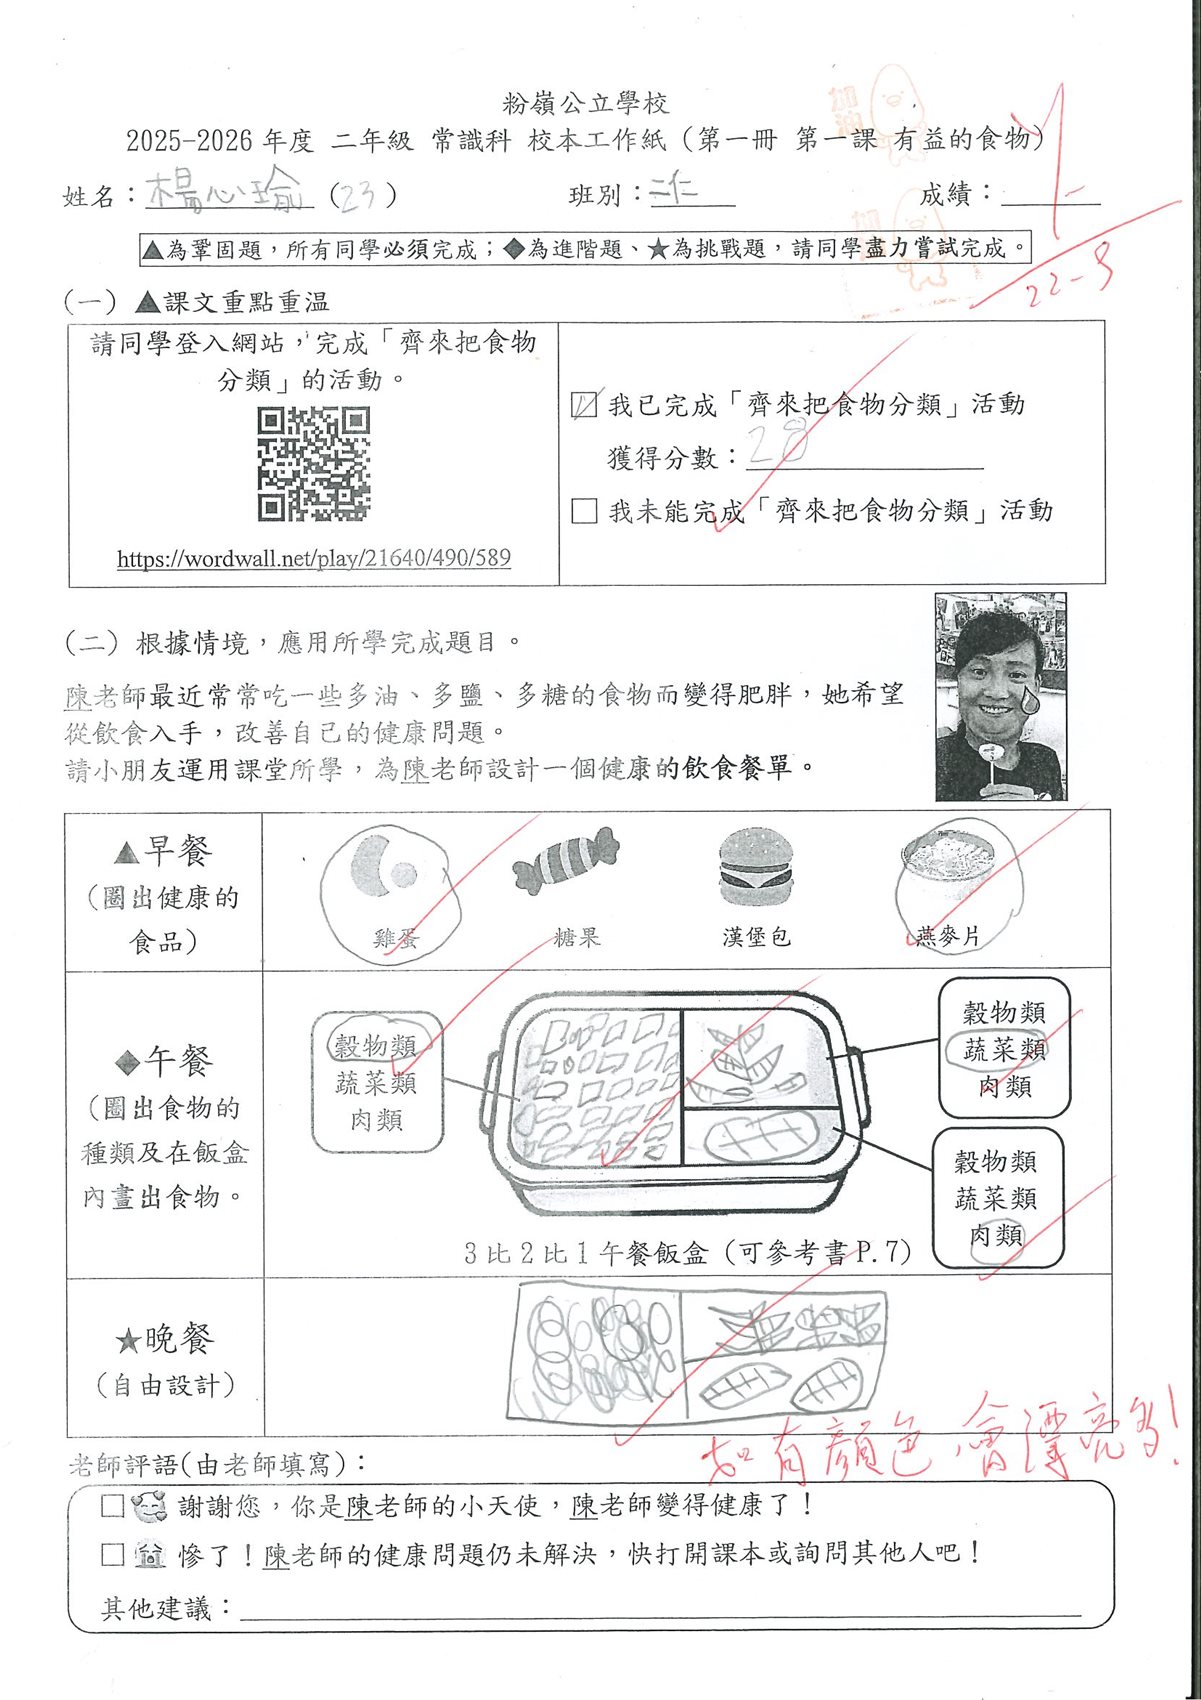 粉嶺公立學校
2025-2026 年度 二年級 常識科 校本工作紙（第一冊 第一課 有益的食物）
姓名：楊心瑜（23）　班別：二仁　成績：
▲為鞏固題，所有同學必須完成；◆為進階題、★為挑戰題，請同學盡力嘗試完成。
22-9
加油
加油
（一）▲課文重點重温
請同學登入網站，完成「齊來把食物
分類」的活動。
https://wordwall.net/play/21640/490/589
☑ 我已完成「齊來把食物分類」活動
獲得分數：28
□ 我未能完成「齊來把食物分類」活動
（二）根據情境，應用所學完成題目。
陳老師最近常常吃一些多油、多鹽、多糖的食物而變得肥胖，她希望
從飲食入手，改善自己的健康問題。
請小朋友運用課堂所學，為陳老師設計一個健康的飲食餐單。
▲早餐
（圈出健康的
食品）
雞蛋　糖果　漢堡包　燕麥片
◆午餐
（圈出食物的
種類及在飯盒
內畫出食物。
穀物類
蔬菜類
肉類
穀物類
蔬菜類
肉類
穀物類
蔬菜類
肉類
3 比 2 比 1 午餐飯盒（可參考書 P.7）
★晚餐
（自由設計）
如有顏色，會漂亮多！
老師評語(由老師填寫)：
□ 謝謝您，你是陳老師的小天使，陳老師變得健康了！
□ 慘了！陳老師的健康問題仍未解決，快打開課本或詢問其他人吧！
其他建議：